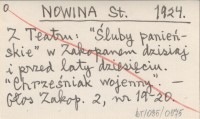 NOWINA St. 1924.
Z Teatru: "Śluby panień-
skie" w Zakopanem dzisiaj
i przed laty dziesięciu.
"Chrześniak wojenny". –
Głos Zakop. 2, nr 19-20.